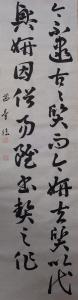 今不逮古々質而今妍夫質以代
興妍因俗易雖書契之作